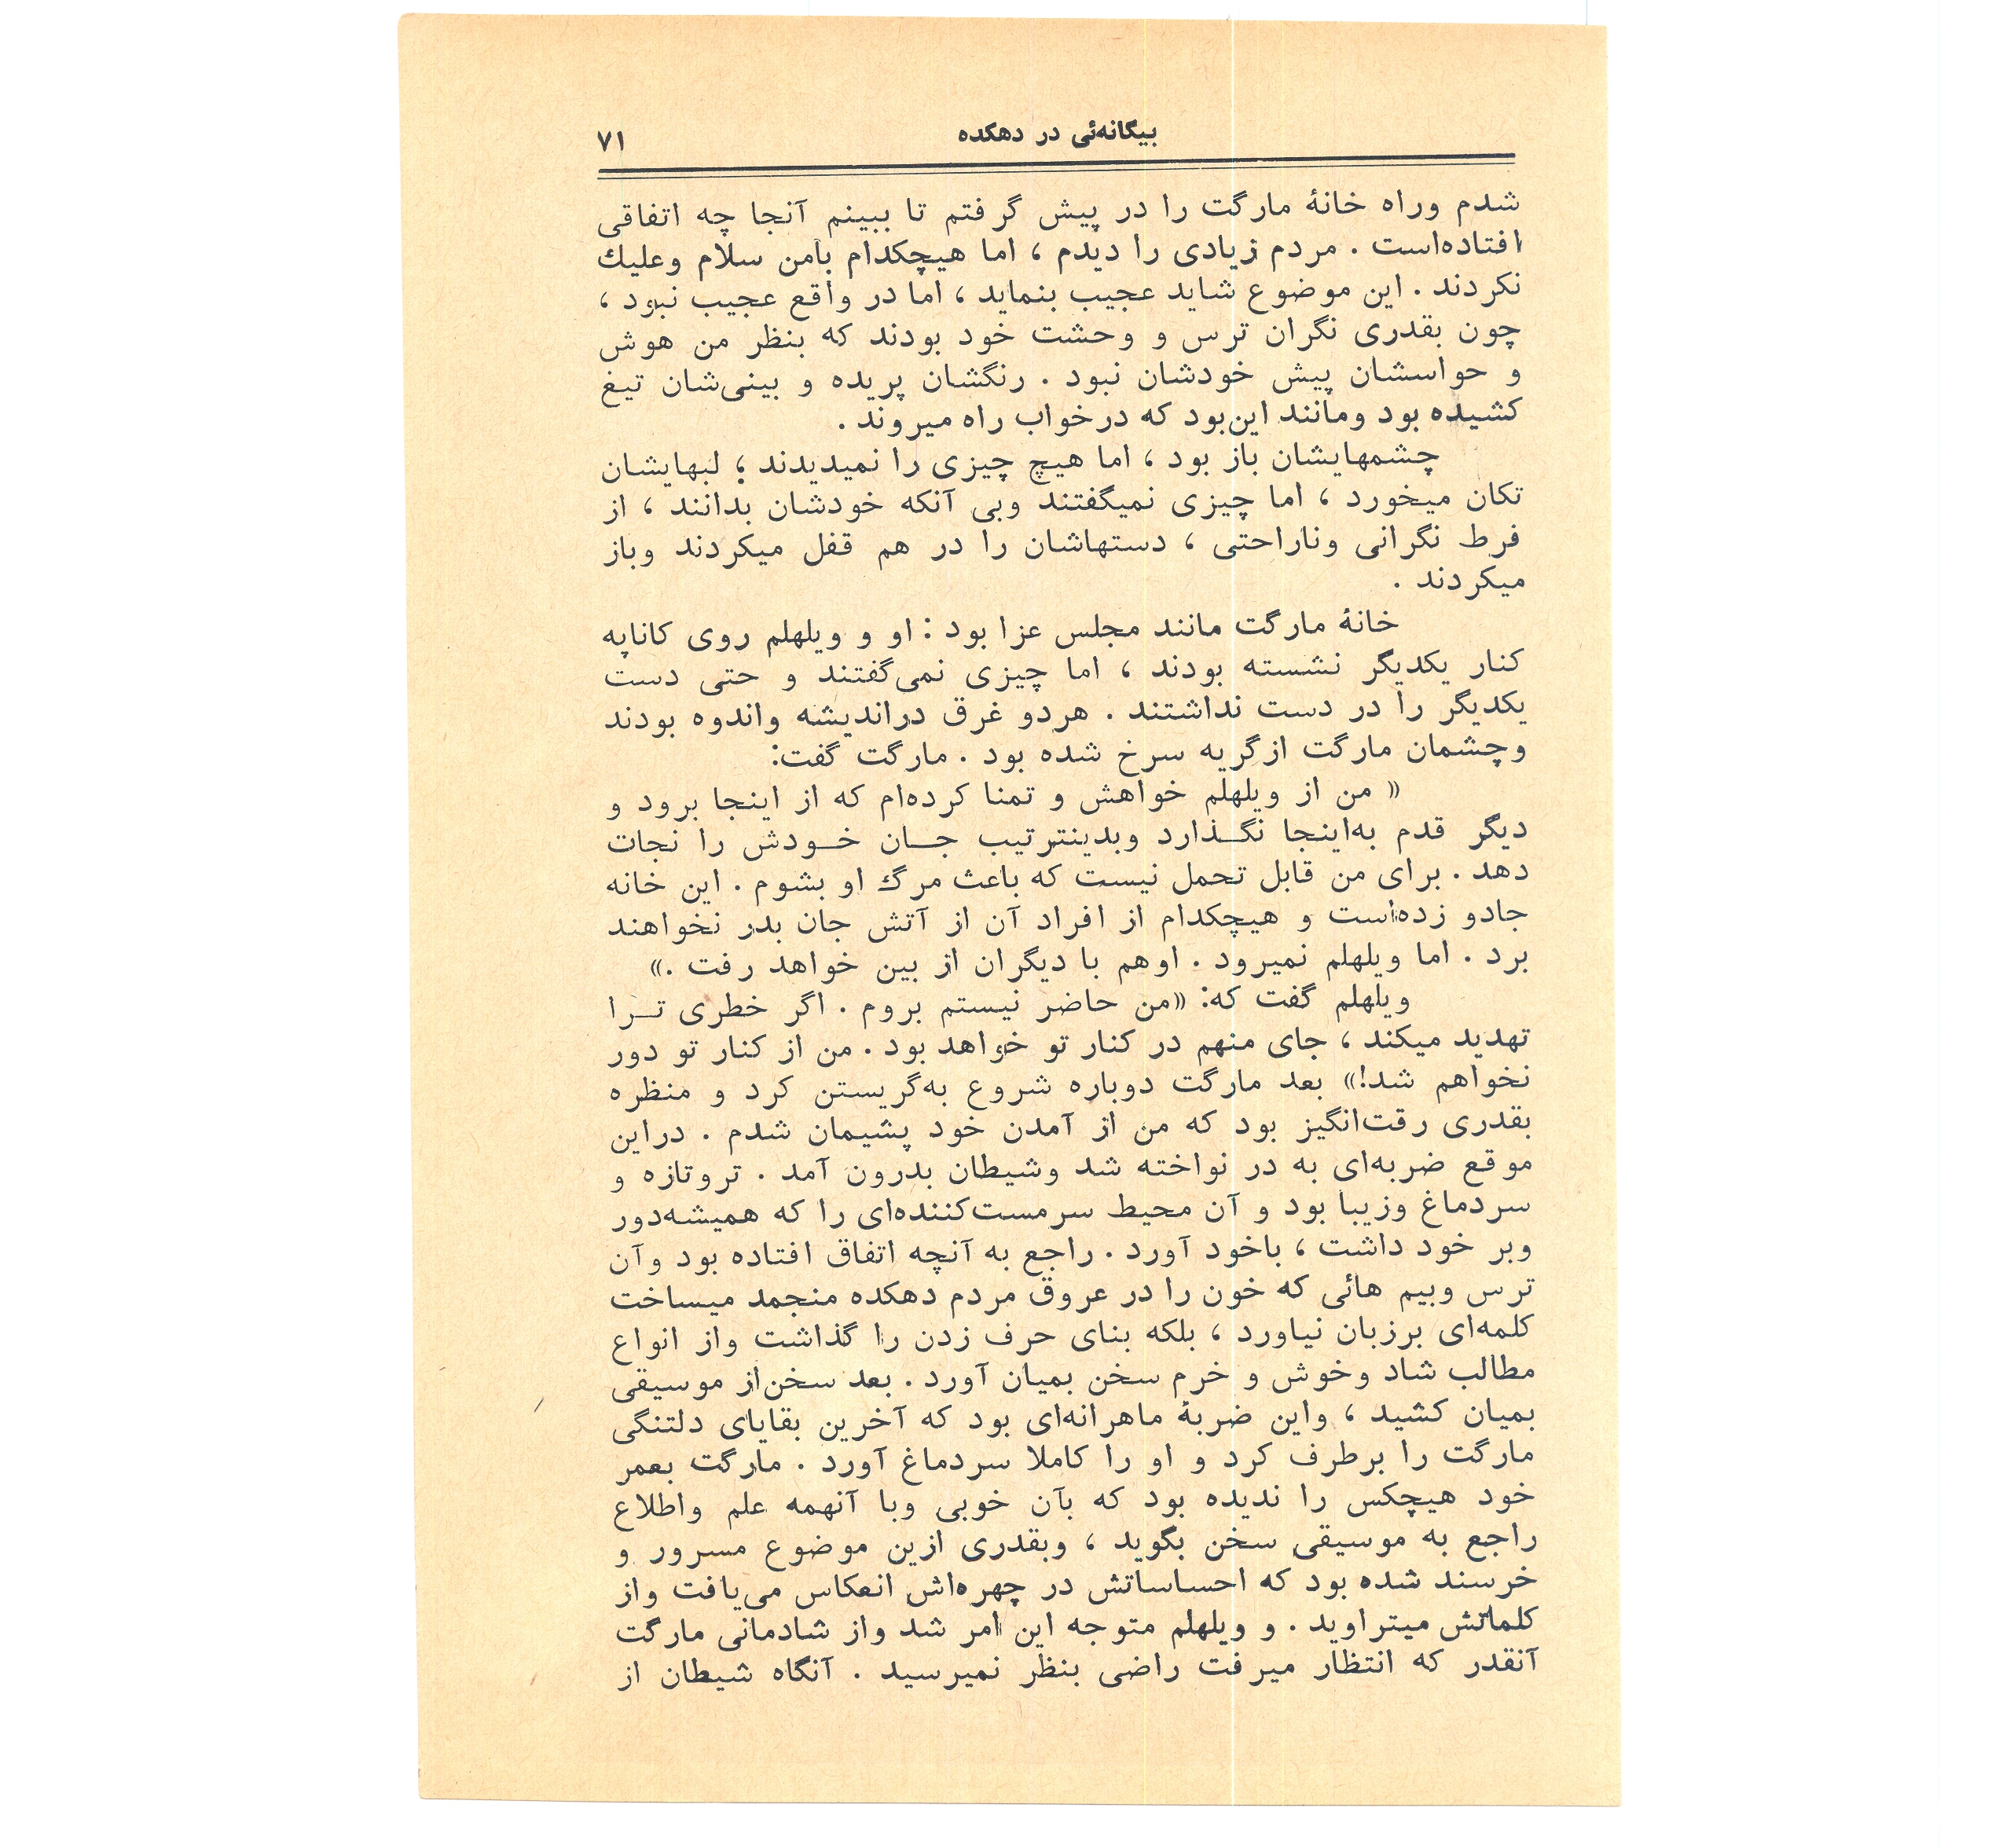 بیگانه‌ئی در دهکده
۷۱
شدم وراه خانهٔ مارگت را در پیش گرفتم تا ببینم آنجا چه اتفاقی
افتاده‌است . مردم زیادی را دیدم ، اما هیچکدام بامن سلام وعلیك
نکردند . این موضوع شاید عجیب بنماید ، اما در واقع عجیب نبود ،
چون بقدری نگران ترس و وحشت خود بودند که بنظر من هوش
و حواسشان پیش خودشان نبود . رنگشان پریده و بینی‌شان تیغ
کشیده بود ومانند این‌بود که درخواب راه میروند .
چشمهایشان باز بود ، اما هیچ چیزی را نمیدیدند ؛ لبهایشان
تکان میخورد ، اما چیزی نمیگفتند وبی آنکه خودشان بدانند ، از
فرط نگرانی وناراحتی ، دستهاشان را در هم قفل میکردند وباز
میکردند .
خانهٔ مارگت مانند مجلس عزا بود : او و ویلهلم روی کاناپه
کنار یکدیگر نشسته بودند ، اما چیزی نمی‌گفتند و حتی دست
یکدیگر را در دست نداشتند . هردو غرق دراندیشه واندوه بودند
وچشمان مارگت ازگریه سرخ شده بود . مارگت گفت:
« من از ویلهلم خواهش و تمنا کرده‌ام که از اینجا برود و
دیگر قدم به‌اینجا نگـذارد وبدینترتیب جـان خـودش را نجات
دهد . برای من قابل تحمل نیست که باعث مرگ او بشوم . این خانه
جادو زده‌است و هیچکدام از افراد آن از آتش جان بدر نخواهند
برد . اما ویلهلم نمیرود . اوهم با دیگران از بین خواهد رفت .»
ویلهلم گفت که: «من حاضر نیستم بروم . اگر خطری تـرا
تهدید میکند ، جای منهم در کنار تو خواهد بود . من از کنار تو دور
نخواهم شد!» بعد مارگت دوباره شروع به‌گریستن کرد و منظره
بقدری رقت‌انگیز بود که من از آمدن خود پشیمان شدم . دراین
موقع ضربه‌ای به در نواخته شد وشیطان بدرون آمد . تروتازه و
سردماغ وزیبا بود و آن محیط سرمست‌کننده‌ای را که همیشه‌دور
وبر خود داشت ، باخود آورد . راجع به آنچه اتفاق افتاده بود وآن
ترس وبیم هائی که خون را در عروق مردم دهکده منجمد میساخت
کلمه‌ای برزبان نیاورد ، بلکه بنای حرف زدن را گذاشت واز انواع
مطالب شاد وخوش و خرم سخن بمیان آورد . بعد سخن‌از موسیقی
بمیان کشید ، واین ضربهٔ ماهرانه‌ای بود که آخرین بقایای دلتنگی
مارگت را برطرف کرد و او را کاملا سردماغ آورد . مارگت بعمر
خود هیچکس را ندیده بود که بآن خوبی وبا آنهمه علم واطلاع
راجع به موسیقی سخن بگوید ، وبقدری ازین موضوع مسرور و
خرسند شده بود که احساساتش در چهره‌اش انعکاس می‌یافت واز
کلماتش میتراوید . و ویلهلم متوجه این امر شد واز شادمانی مارگت
آنقدر که انتظار میرفت راضی بنظر نمیرسید . آنگاه شیطان از